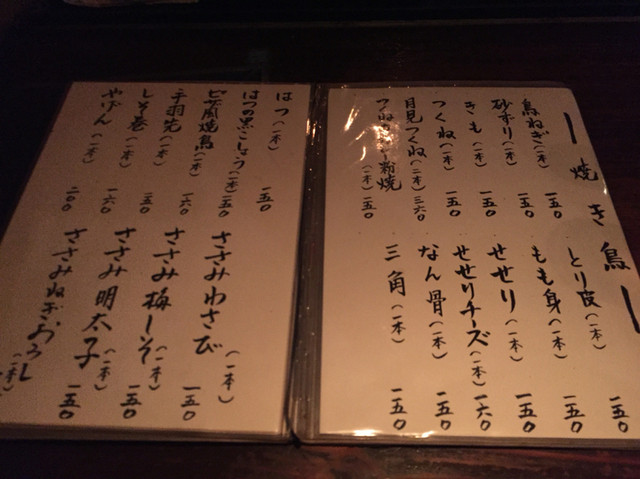 焼き鳥
鳥ねぎ(一本) 一五〇
砂ずり(一本) 一五〇
きも(一本) 一五〇
つくね(一本) 一五〇
月見つくね(二本) 三六〇
粉焼(一本) 一五〇
一五〇
とり皮(一本) 一五〇
もも身(一本) 一五〇
せせり(一本) 一五〇
せせりチーズ(一本) 一六〇
なん骨(一本) 一五〇
三角(一本) 一五〇
はつ(一本) 一五〇
はつの黒こしょう(一本) 一五〇
ピザ風焼鳥(一本) 一六〇
手羽先(一本) 一五〇
しそ巻(一本) 一六〇
やげん(一本) 二〇〇
ささみわさび(一本) 一五〇
ささみ梅しそ(一本) 一五〇
ささみ明太子(一本) 一五〇
ささみねぎおろし(一本)